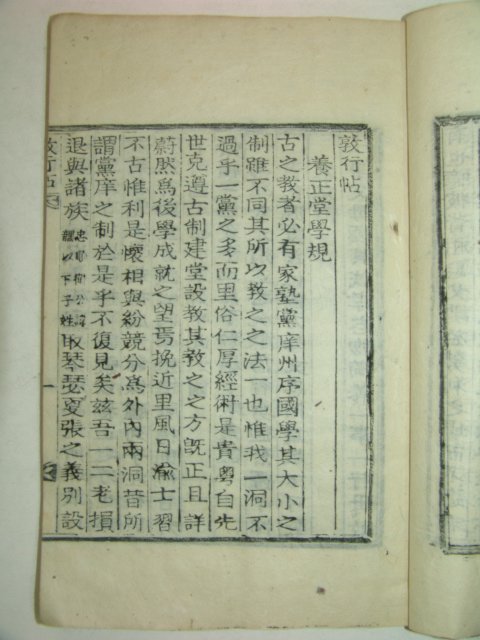 敦行帖
養正堂學規
古之教者必有家塾黨庠州序國學其大小之
制雖不同其所以教之之法一也惟我一洞不
過乎一黨之多而里俗仁厚經術是貴粤自先
世克遵古制建堂設教其教之之方旣正且詳
蔚然爲後學成就之望焉挽近里風日渝士習
不古惟利是懷相與紛競分爲外內兩洞昔所
謂黨庠之制於是乎不復見矣玆吾一二老損
退與諸族 以下子姓 取琴瑟更張之義別設
敦行帖
一